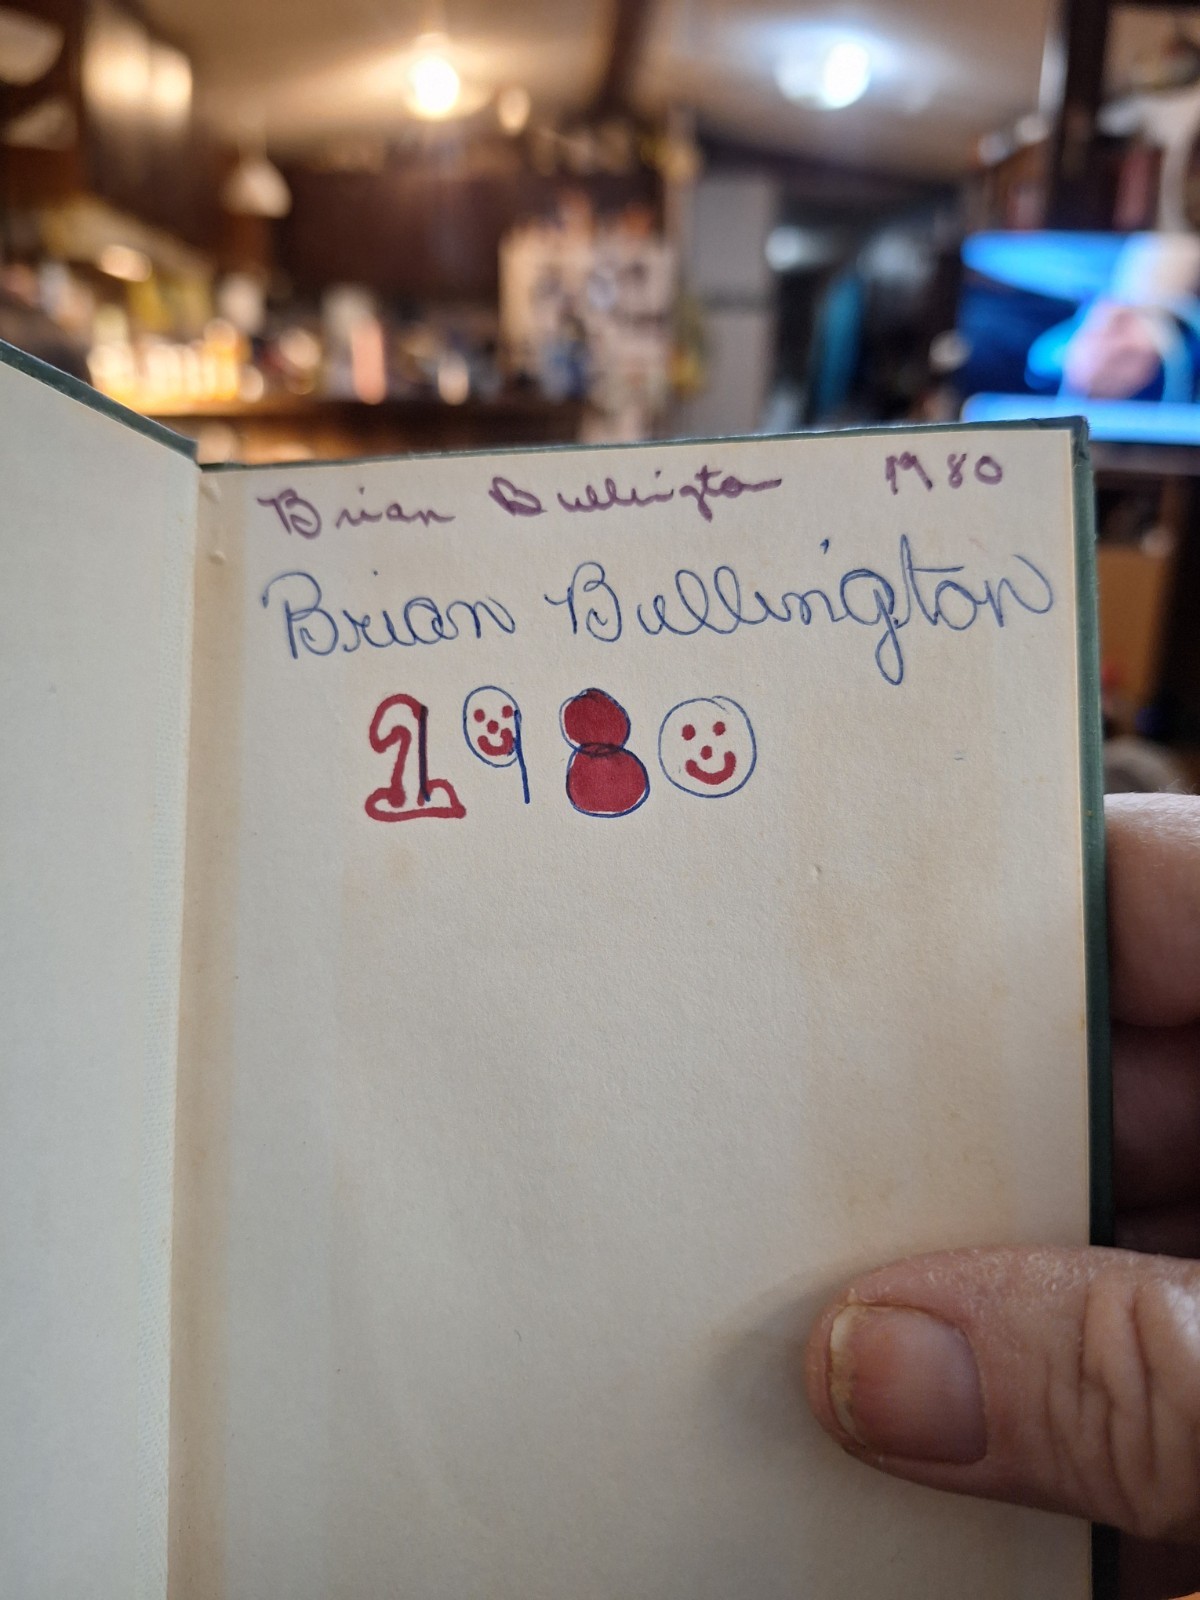 Brian Bullington 1980
Brian Bullington
1980